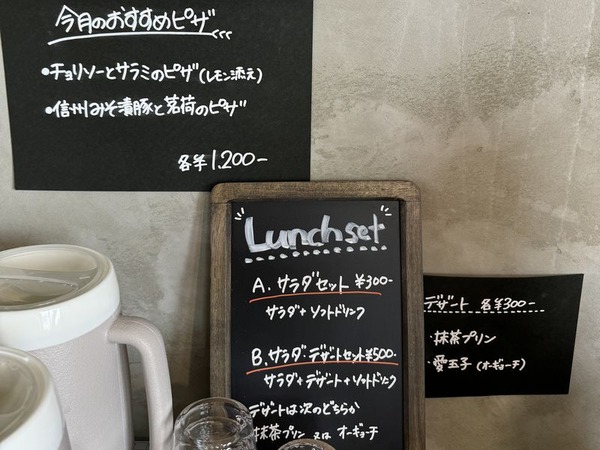 今月のおすすめピザ
•チョリソーとサラミのピザ(レモン添え)
•信州みそ漬豚と茗荷のピザ
各¥1,200-
Lunch set
A. サラダセット ¥300-
サラダ+ソフトドリンク
B. サラダ・デザートセット¥500-
サラダ+デザート+ソフトドリンク
デザートは次のどちらか
抹茶プリン 又は オーギョーチ
デザート 各¥300-
・抹茶プリン
・愛玉子(オーギョーチ)